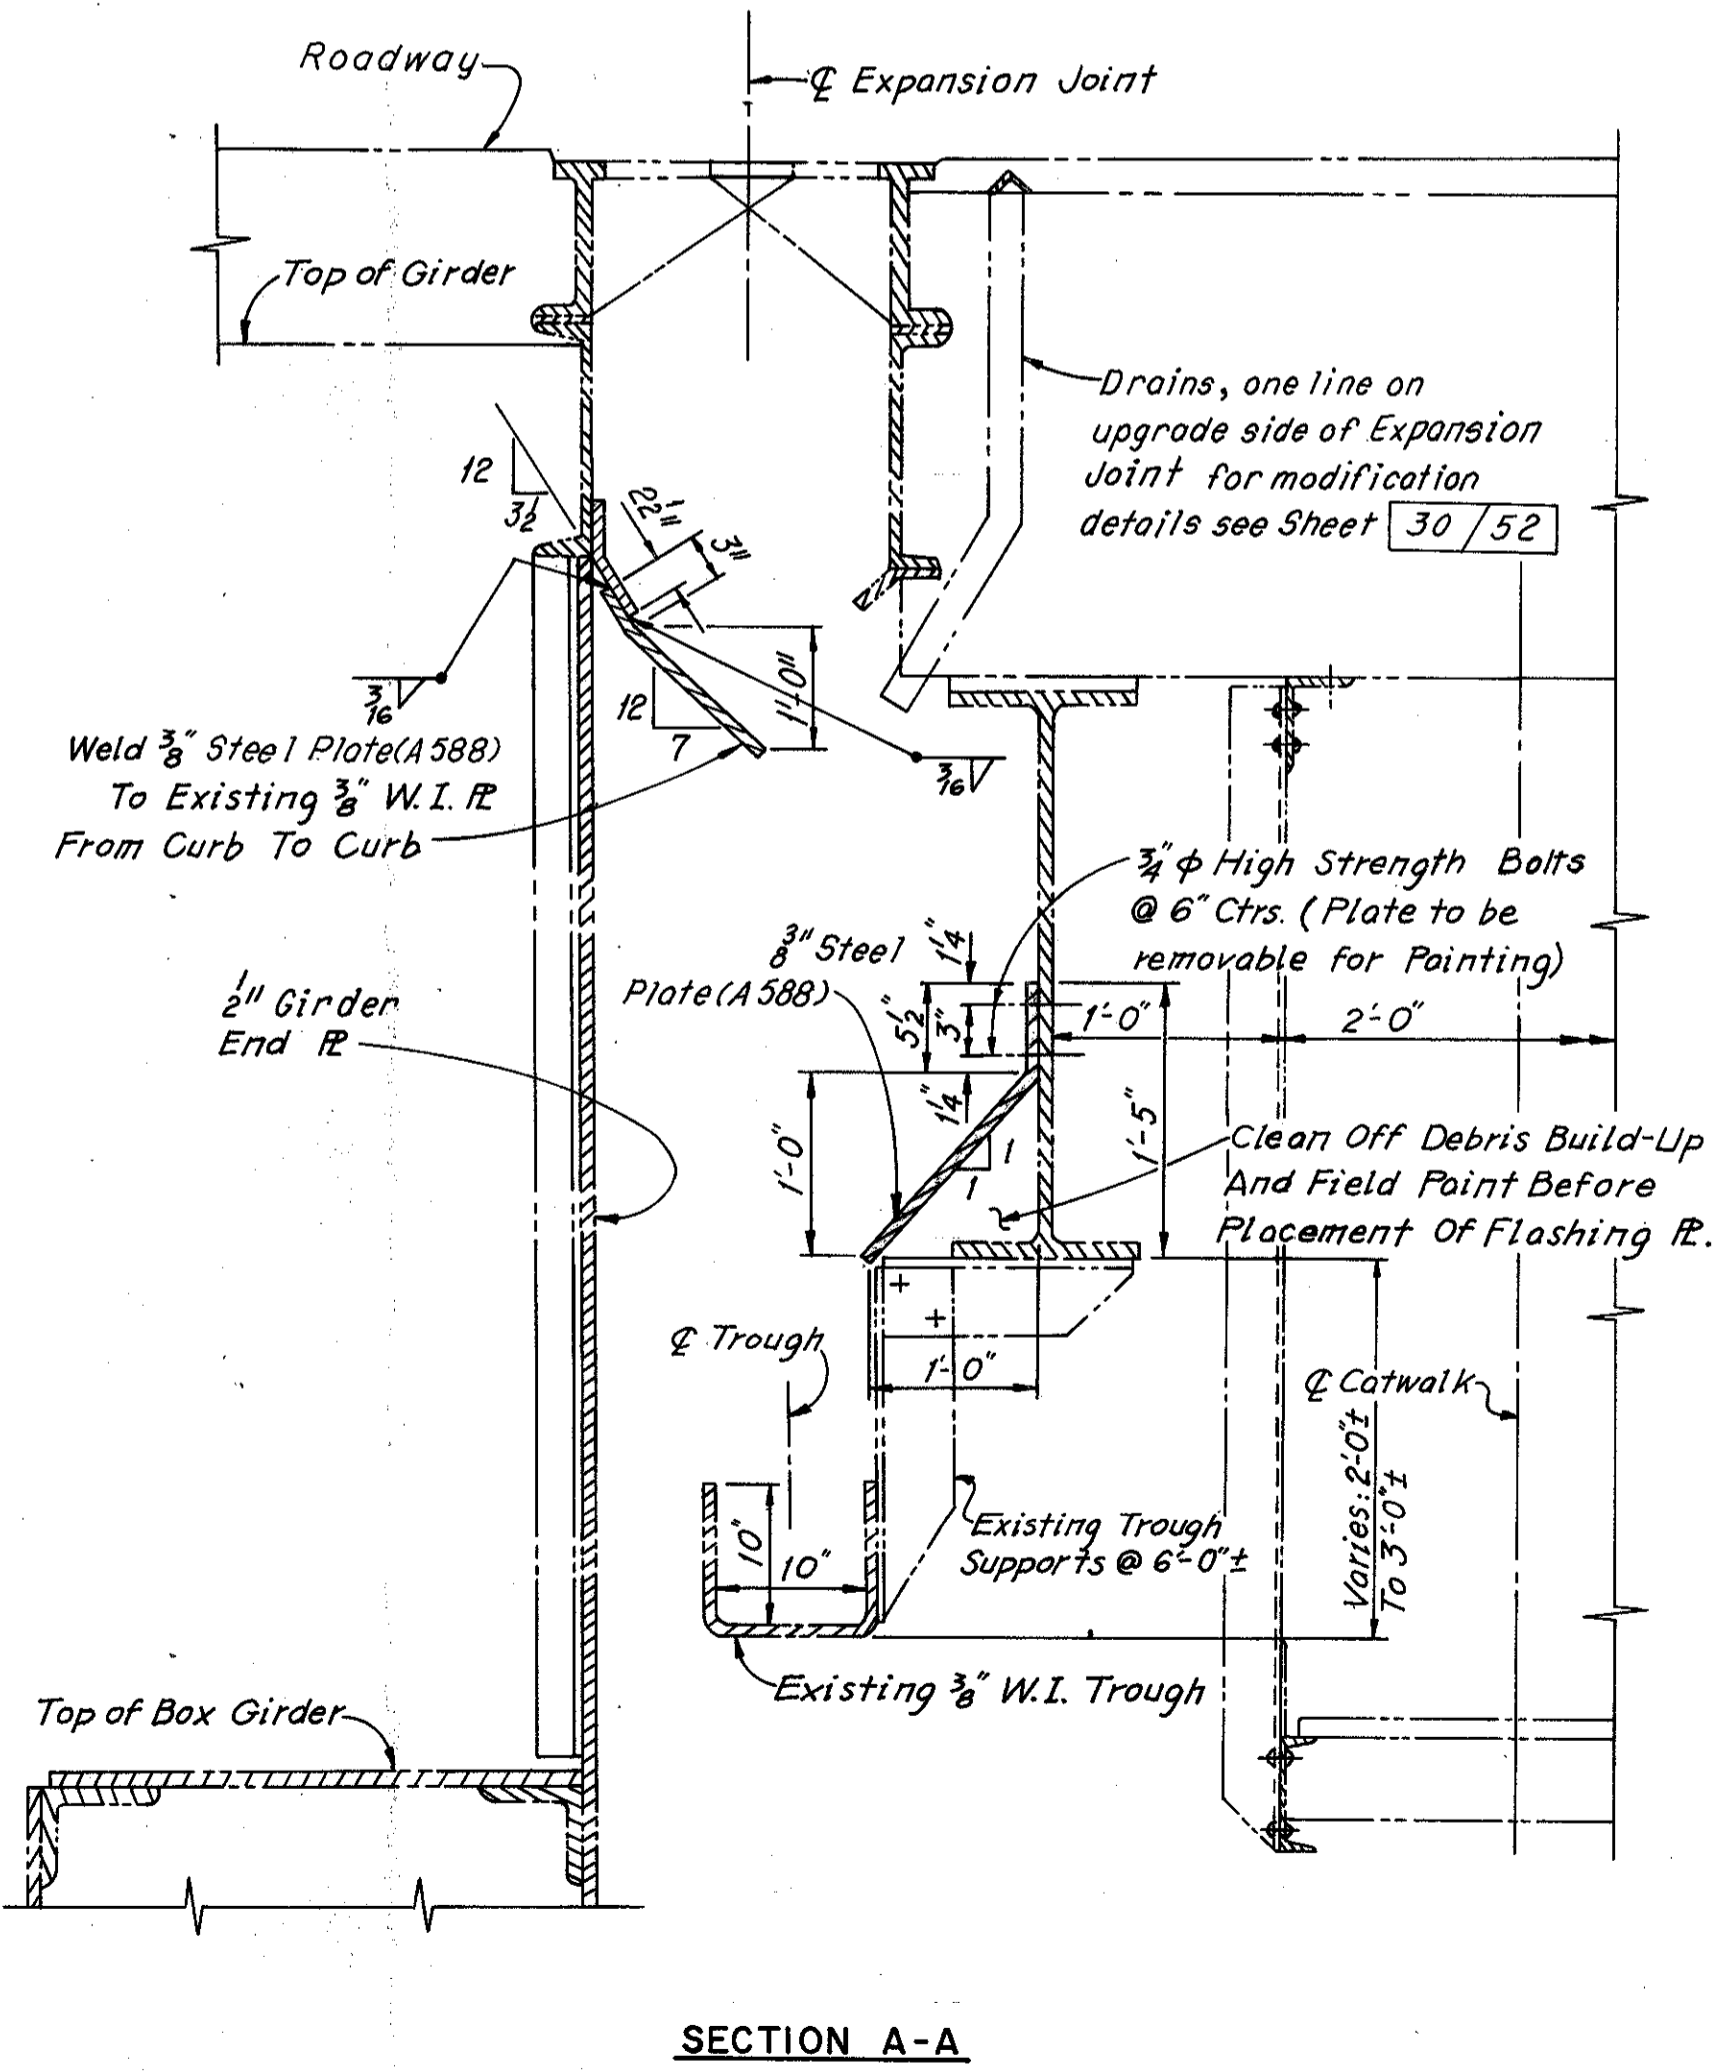 Roadway
℄ Expansion Joint
Top of Girder
Drains, one line on
upgrade side of Expansion
Joint for modification
details see Sheet 30/52
12
3½
2½"
3"
1'-0"
12
7
3/16
3/16
Weld 3/8" Steel Plate (A588)
To Existing 3/8" W.I. ℙL
From Curb To Curb
3/4" ϕ High Strength Bolts
@ 6" Ctrs. (Plate to be
removable for Painting)
3/8" Steel
Plate (A588)
1¼"
5½"
3"
1¼"
1'-0"
2'-0"
½" Girder
End ℙL
1'-0"
1
1
1'-5"
Clean Off Debris Build-Up
And Field Paint Before
Placement Of Flashing ℙL.
℄ Trough
1'-0"
℄ Catwalk
Varies: 2'-0"±
To 3'-0"±
10"
10"
Existing Trough
Supports @ 6'-0"±
Existing 3/8" W.I. Trough
Top of Box Girder
SECTION A-A